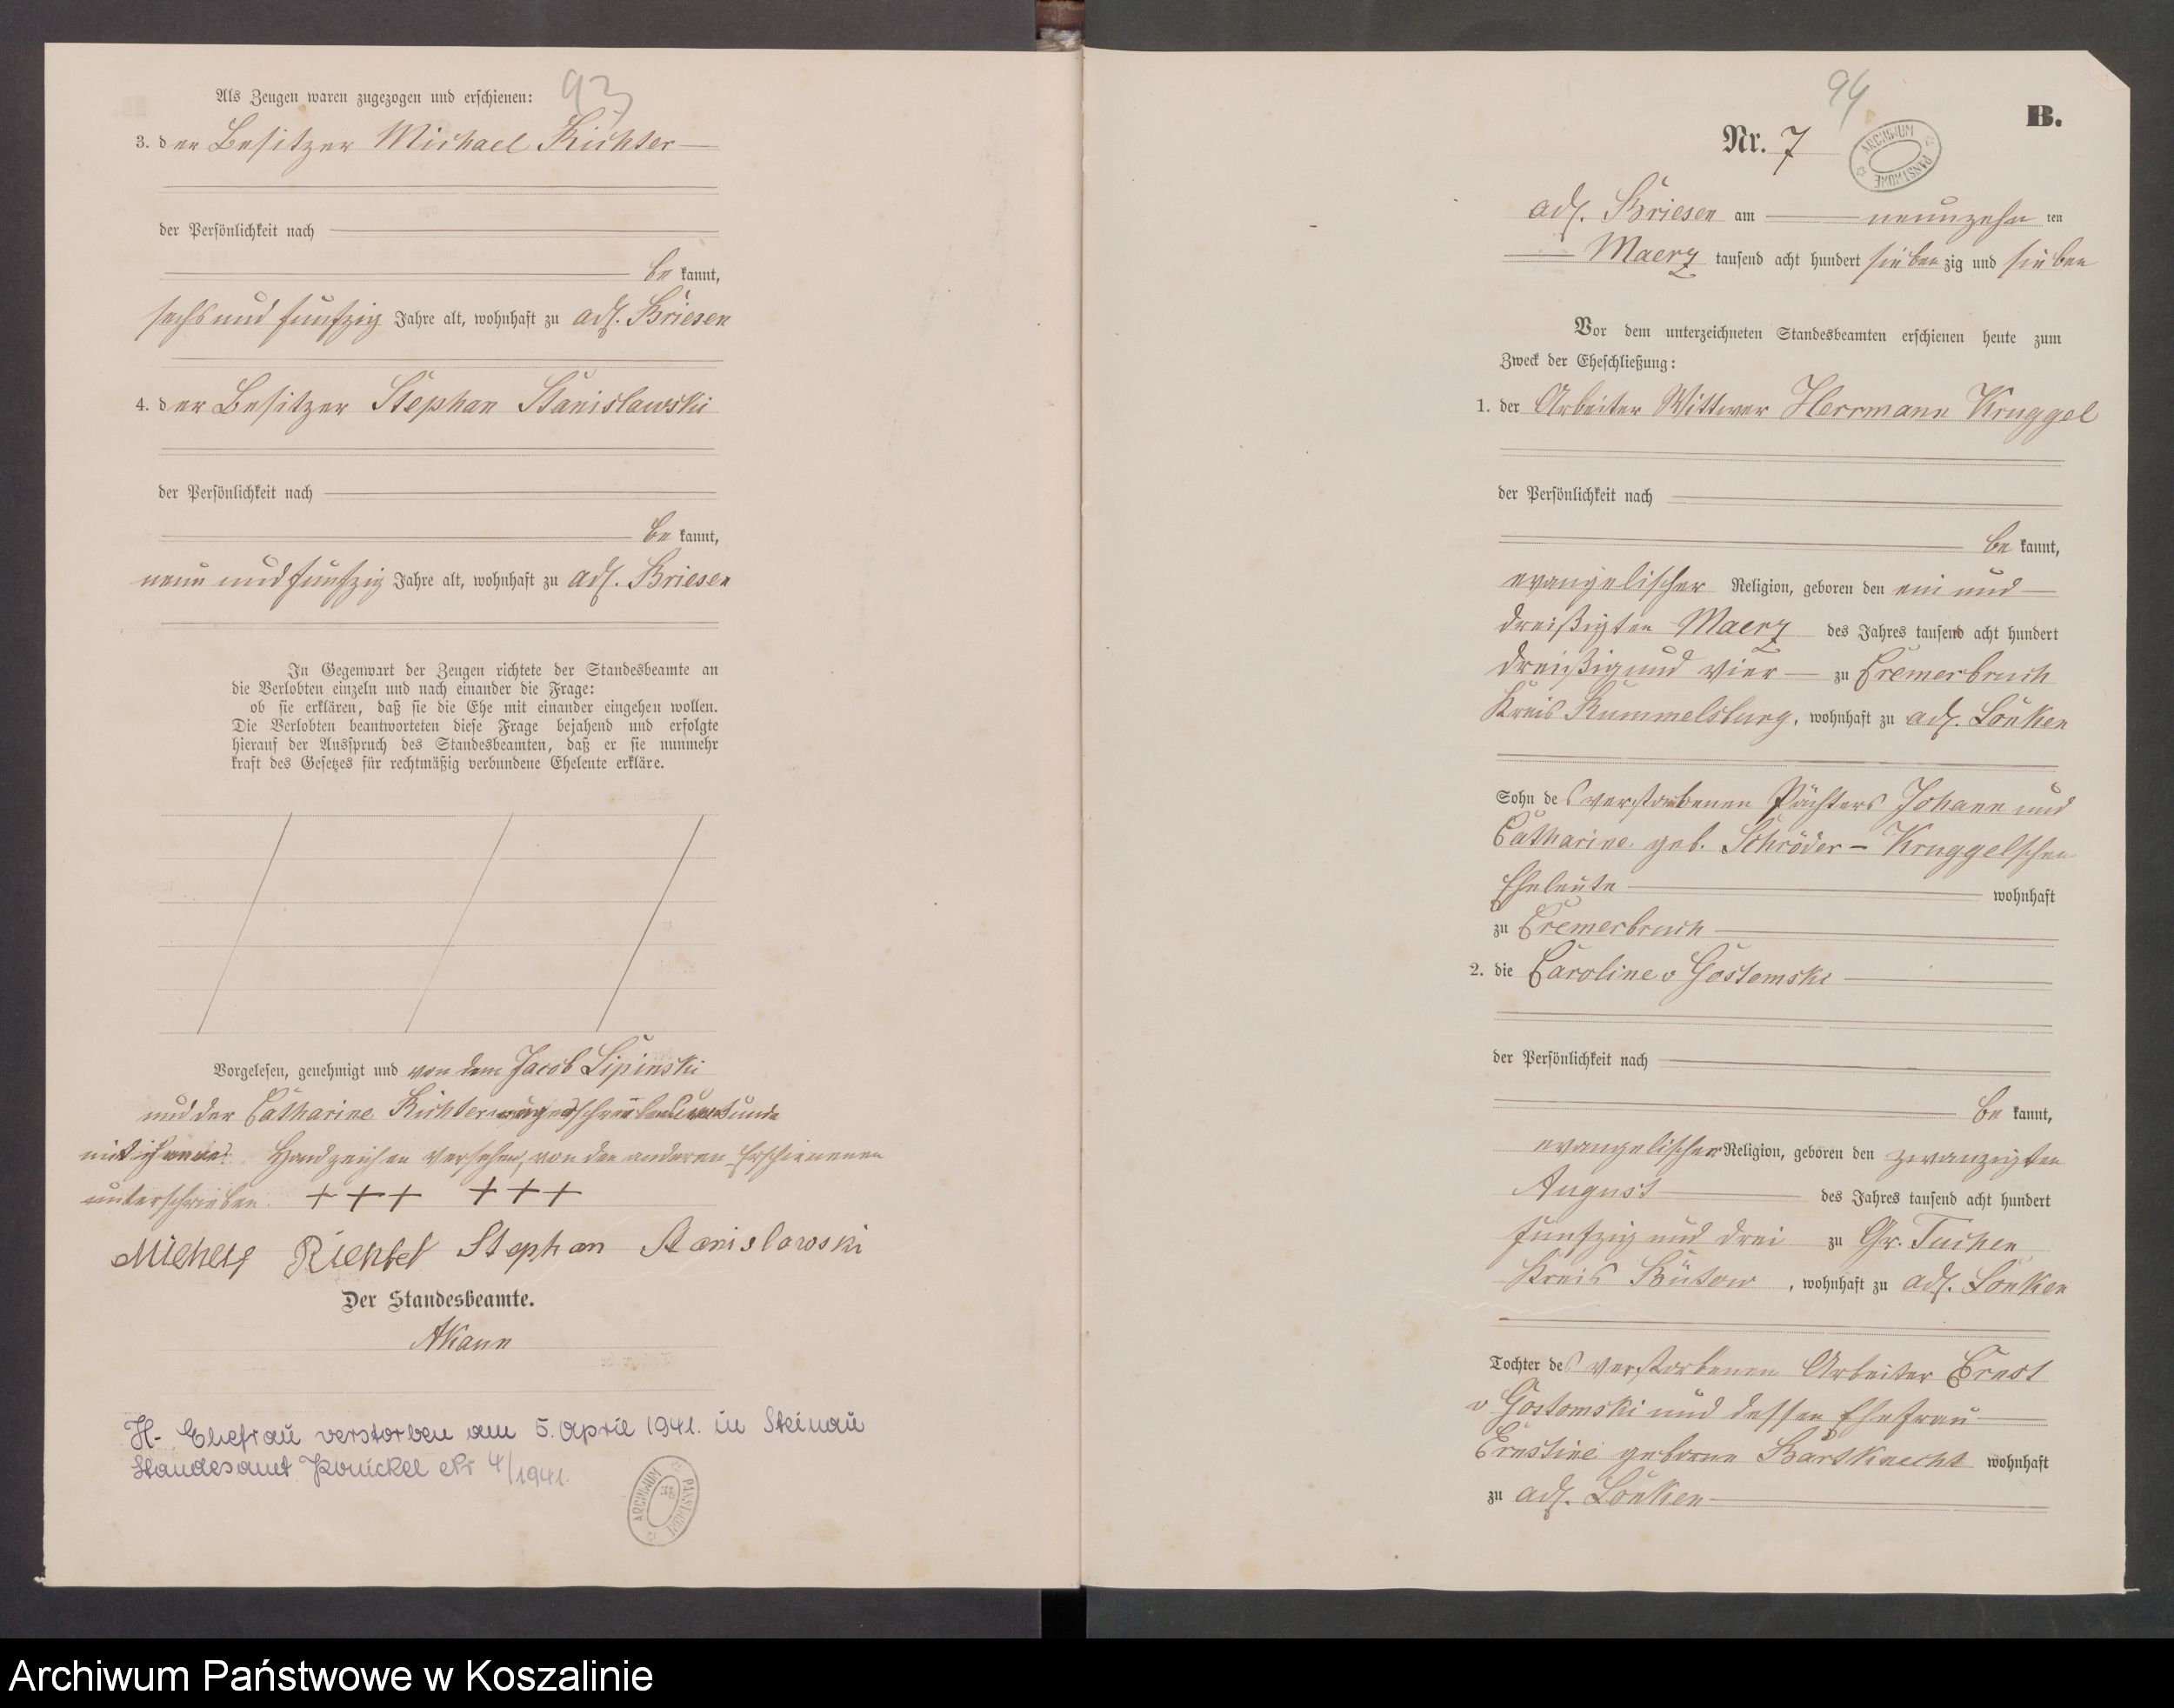 93
Als Zeugen waren zugezogen und erschienen:
3. der Besitzer Michael Richter
der Persönlichkeit nach
bekannt,
sechs und funfzig Jahre alt, wohnhaft zu adl. Briesen
4. der Besitzer Stephan Stanislawski
der Persönlichkeit nach
bekannt,
neun und funfzig Jahre alt, wohnhaft zu adl. Briesen
In Gegenwart der Zeugen richtete der Standesbeamte an
die Verlobten einzeln und nach einander die Frage:
ob sie erklären, daß sie die Ehe mit einander eingehen wollen.
Die Verlobten beantworteten diese Frage bejahend und erfolgte
hierauf der Ausspruch des Standesbeamten, daß er sie nunmehr
kraft des Gesetzes für rechtmäßig verbundene Eheleute erkläre.
Vorgelesen, genehmigt und von dem Jacob Lipinski
und der Catharine Richter wegen
Handzeichen versehen, von den anderen Erschienenen
unterschrieben. +++ +++
Stephan Stanislowski
Der Standesbeamte.
AKann
H- Ehefrau verstorben am 5. April 1941. in Steinau
Standesamt Nr 4/1941.
ARCHIWUM PAŃSTWOWE
94
B.
Nr. 7
ARCHIWUM PAŃSTWOWE
adl. Briesen am neunzehn ten
Maerz tausend acht hundert siebenzig und sieben
Vor dem unterzeichneten Standesbeamten erschienen heute zum
Zweck der Eheschließung:
1. der Arbeiter Wittwer Herrmann Kruggel
der Persönlichkeit nach
bekannt,
evangelischer Religion, geboren den ein und
dreißigten Maerz des Jahres tausend acht hundert
dreißig und vier zu Cremerbruch
Kreis Rummelsburg, wohnhaft zu adl. Lonken
Sohn des verstorbenen Pächters Johann und
Catharine geb. Schröder - Kruggelschen
Eheleute wohnhaft
zu Cremerbruch
2. die Caroline v Gostomski
der Persönlichkeit nach
bekannt,
evangelischer Religion, geboren den zwanzigten
August des Jahres tausend acht hundert
funfzig und drei zu Gr. Tuchen
Kreis Bütow, wohnhaft zu adl. Lonken
Tochter des verstorbenen Arbeiter Ernst
v Gostomski und dessen Ehefrau
Ernstine geborne Bartknecht wohnhaft
zu adl. Lonken
Archiwum Państwowe w Koszalinie